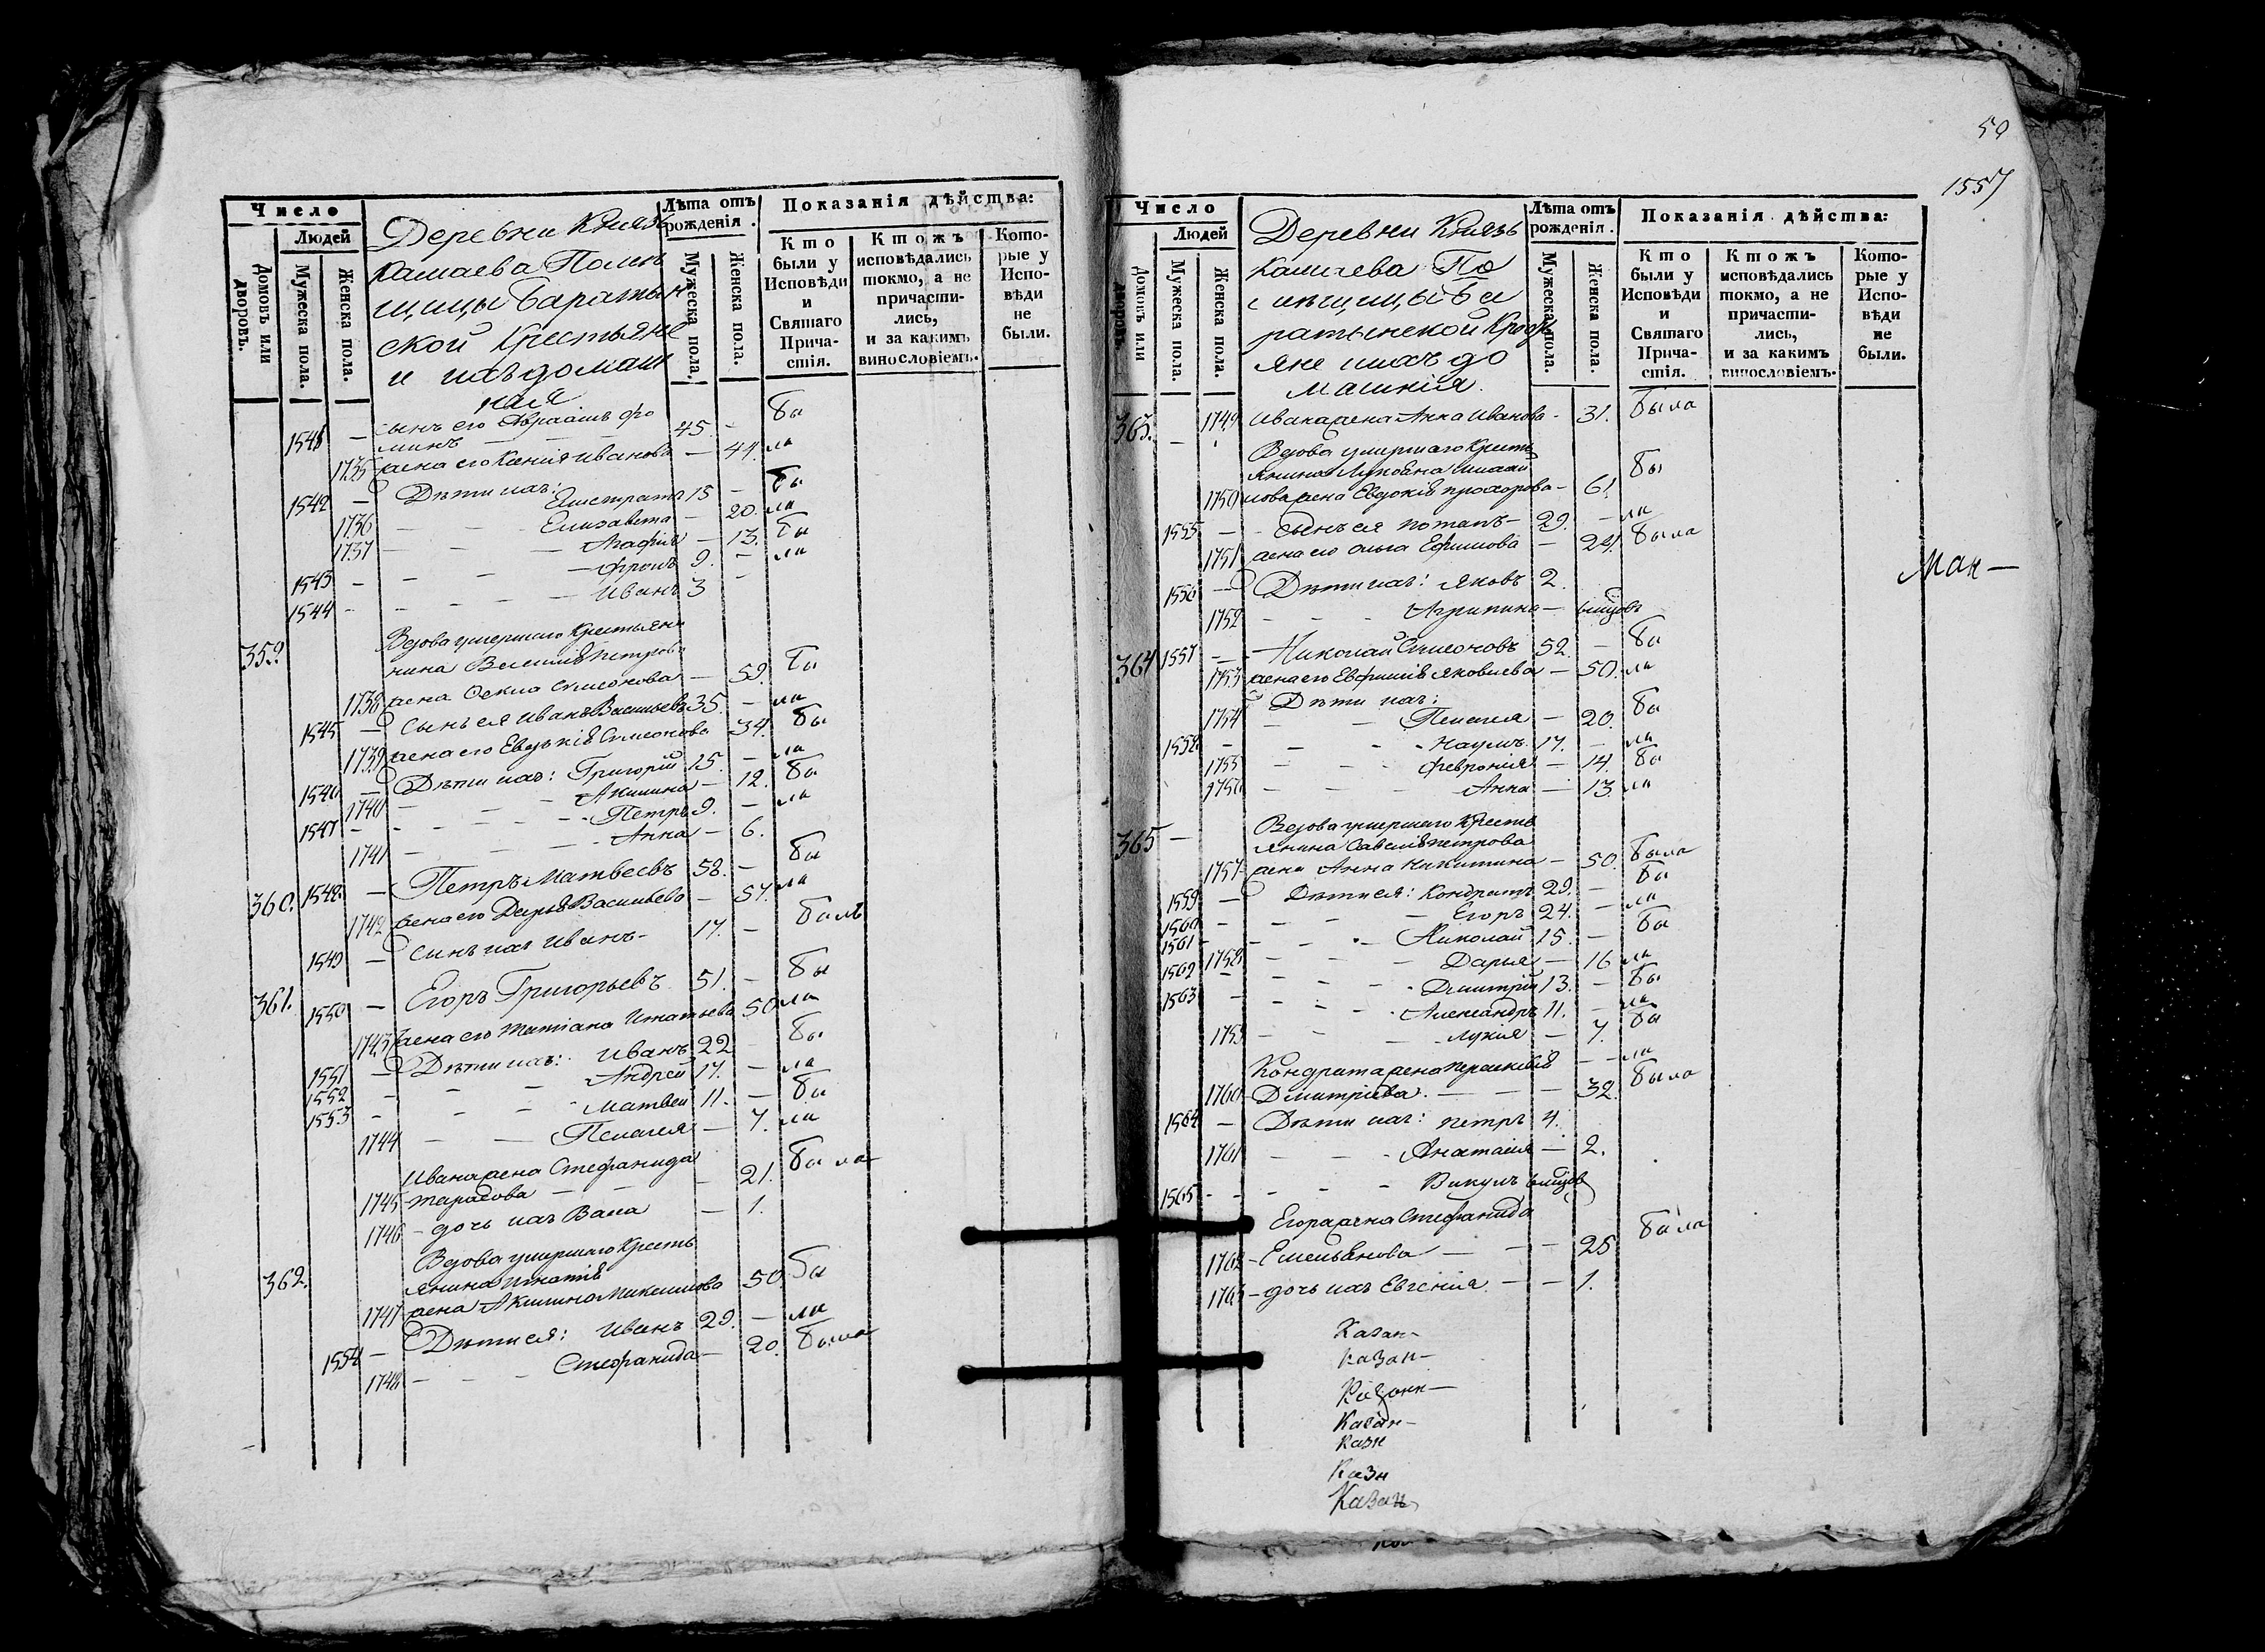 Число
Людей
Домовъ или дворовъ.
Мужеска пола.
Женска пола.
Деревни Князь
камаева Помѣ
щицы Баратын
ской Крестьяне
и ихъ домаш
ния
Лѣта отъ рожденія.
Мужеска пола.
Женска пола.
Показанія дѣйства:
Кто были у Исповѣди и Святаго Прича-стія.
Ктожъ исповѣдались токмо, а не причасти-лись, и за какимъ винословіемъ.
Кото-рые у Испо-вѣди не были.
1541 — сынъ его Авраамъ Фо
минъ 45. — бы
1735 жена его Ксенія Иванова — 44. ла
Дѣти ихъ:
1542 — Евстратъ 15 — бы
1736 — — Елизавета — 20. ла
1737 — — Агафия — 13. бы
1543 — — — Фролъ 9. — ла
1544 — — — Иванъ 3 —
359. Вдова умершаго Крестьяни
нина Василія Петрова
1738 жена Фекла Симеонова — 59. бы
1545 — Сынъ ея Иванъ Васильевъ 35. — ла
1739 жена его Евдокія Симеонова 34. бы
1546 — Дѣти ихъ: Григорій 15. — ла
1740 — — Акилина — 12. бы
1547 — — — Петръ 9. — ла
1741 — — Анна — 6.
360. 1548. — Петръ Матвеевъ 58. — бы
1742 жена его Дарья Васильева — 57. ла
1549 — Сынъ ихъ Иванъ — 17. — былъ
361. 1550 — Егоръ Григорьевъ 51. — бы
1743 жена его Татіана Игнатьева 50 ла
1551 — Дѣти ихъ: Иванъ 22 бы
1552 — — — Андрей 17. — ла
1553 — — — Матвей 11. — бы
1744 — — Пелагея — 7. ла
Ивана жена Стефанида
1745 Тарасова — — — 21. была
1746 — дочь ихъ Васа — 1.
362. Вдова умершаго Кресть
янина Игнатія
1747 жена Акилина Максимова 50. бы
1554 — Дѣти ея: Иванъ 29. — ла
1748 — — — Стефанида — 20. была
50
1557
Число
Людей
Домовъ или дворовъ.
Мужеска пола.
Женска пола.
Деревни Князь
Камаева По
мѣщицы Ба
ратынской Кресть
яне ихъ до
машнія.
Лѣта отъ рожденія.
Мужеска пола.
Женска пола.
Показанія дѣйства:
Кто были у Исповѣди и Святаго Прича-стія.
Ктожъ исповѣдались токмо, а не причасти-лись, и за какимъ винословіемъ.
Кото-рые у Испо-вѣди не были.
363. — 1749 Ивана жена Анна Иванова — 31. была
Вдова умершаго Кресть
янина
1750 жена Евдокія Прохорова — 61. бы
1555 — Сынъ ея Потапъ — 29. — ла
1751 жена его Ольга Ефимова — 24. была
1556 — Дѣти ихъ: Яковъ 2.
1752 — — Агрипина —
364 1557 — Николай Симеоновъ 52. — бы
1753 жена его Евфимія Яковлева — 50. ла
Дѣти ихъ:
1754 — — Пелагея — 20. бы
1558 — — — Наумъ 17. — ла
1755 — — Феврония — 14. бы
1756 — — — Анна — 13. ла
Ман —
365 — Вдова умершаго Кресть
янина Савелія Петрова
1757 жена Анна Никитина — 50. была
1559 — Дѣти ея: Кондратъ 29. — бы
1560 — — — Егоръ 24. — ла
1561 — — — Николай 15. — бы
1758 — — Дарья — 16 ла
1562 — — — Дмитрій 13. — бы
1563 — — — Александръ 11. — ла
1759 — — Лукия — 7. бы
Кондрата жена Параскевія — — ла
1760 — Дмитріева. — — — 32. была
1564 — Дѣти ихъ: Петръ 4.
1761 — — Анатасия — 2.
1565 — — — Викулъ
Егора жена Стефанида
1762 — Емельянова — — — 25 была
1763 — дочь ихъ Евгения. — — 1.
Казан-
Казан-
Казанн-
Казан-
Казн
Казн
Казань